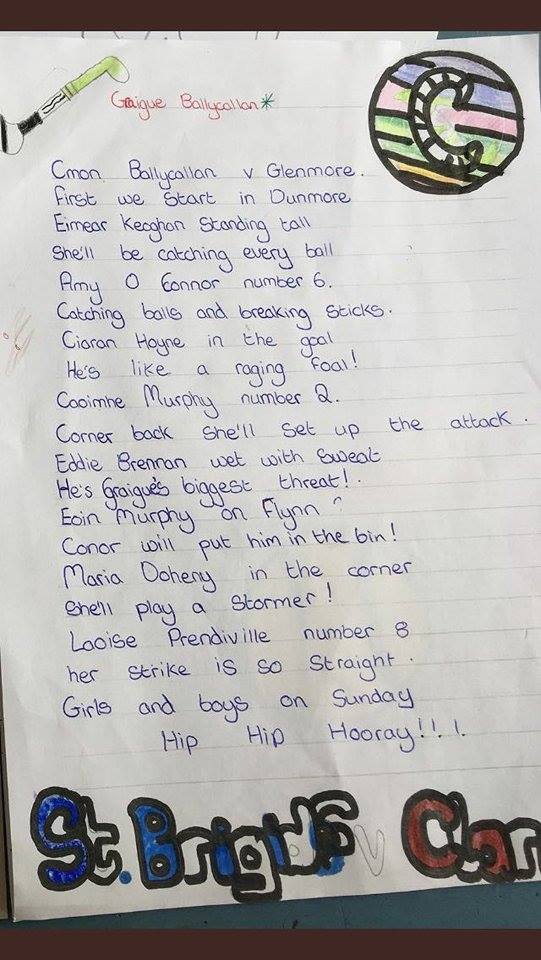 Graigue Ballycallan*
Cmon Ballycallan v Glenmore.
First we start in Dunmore
Eimear Keoghan Standing tall
She'll be catching every ball
Amy O Connor number 6.
Catching balls and breaking sticks.
Ciaran Hoyne in the goal
He's like a raging foal!
Caoimhe Murphy number 2.
Corner back she'll set up the attack.
Eddie Brennan wet with sweat
He's Graigue's biggest threat!.
Eoin Murphy on Flynn
Conor will put him in the bin!
Maria Doheny in the corner
She'll play a stormer!
Laoise Prendiville number 8
her strike is so straight.
Girls and boys on Sunday
Hip Hip Hooray!!!.
St. Brigids v Clar